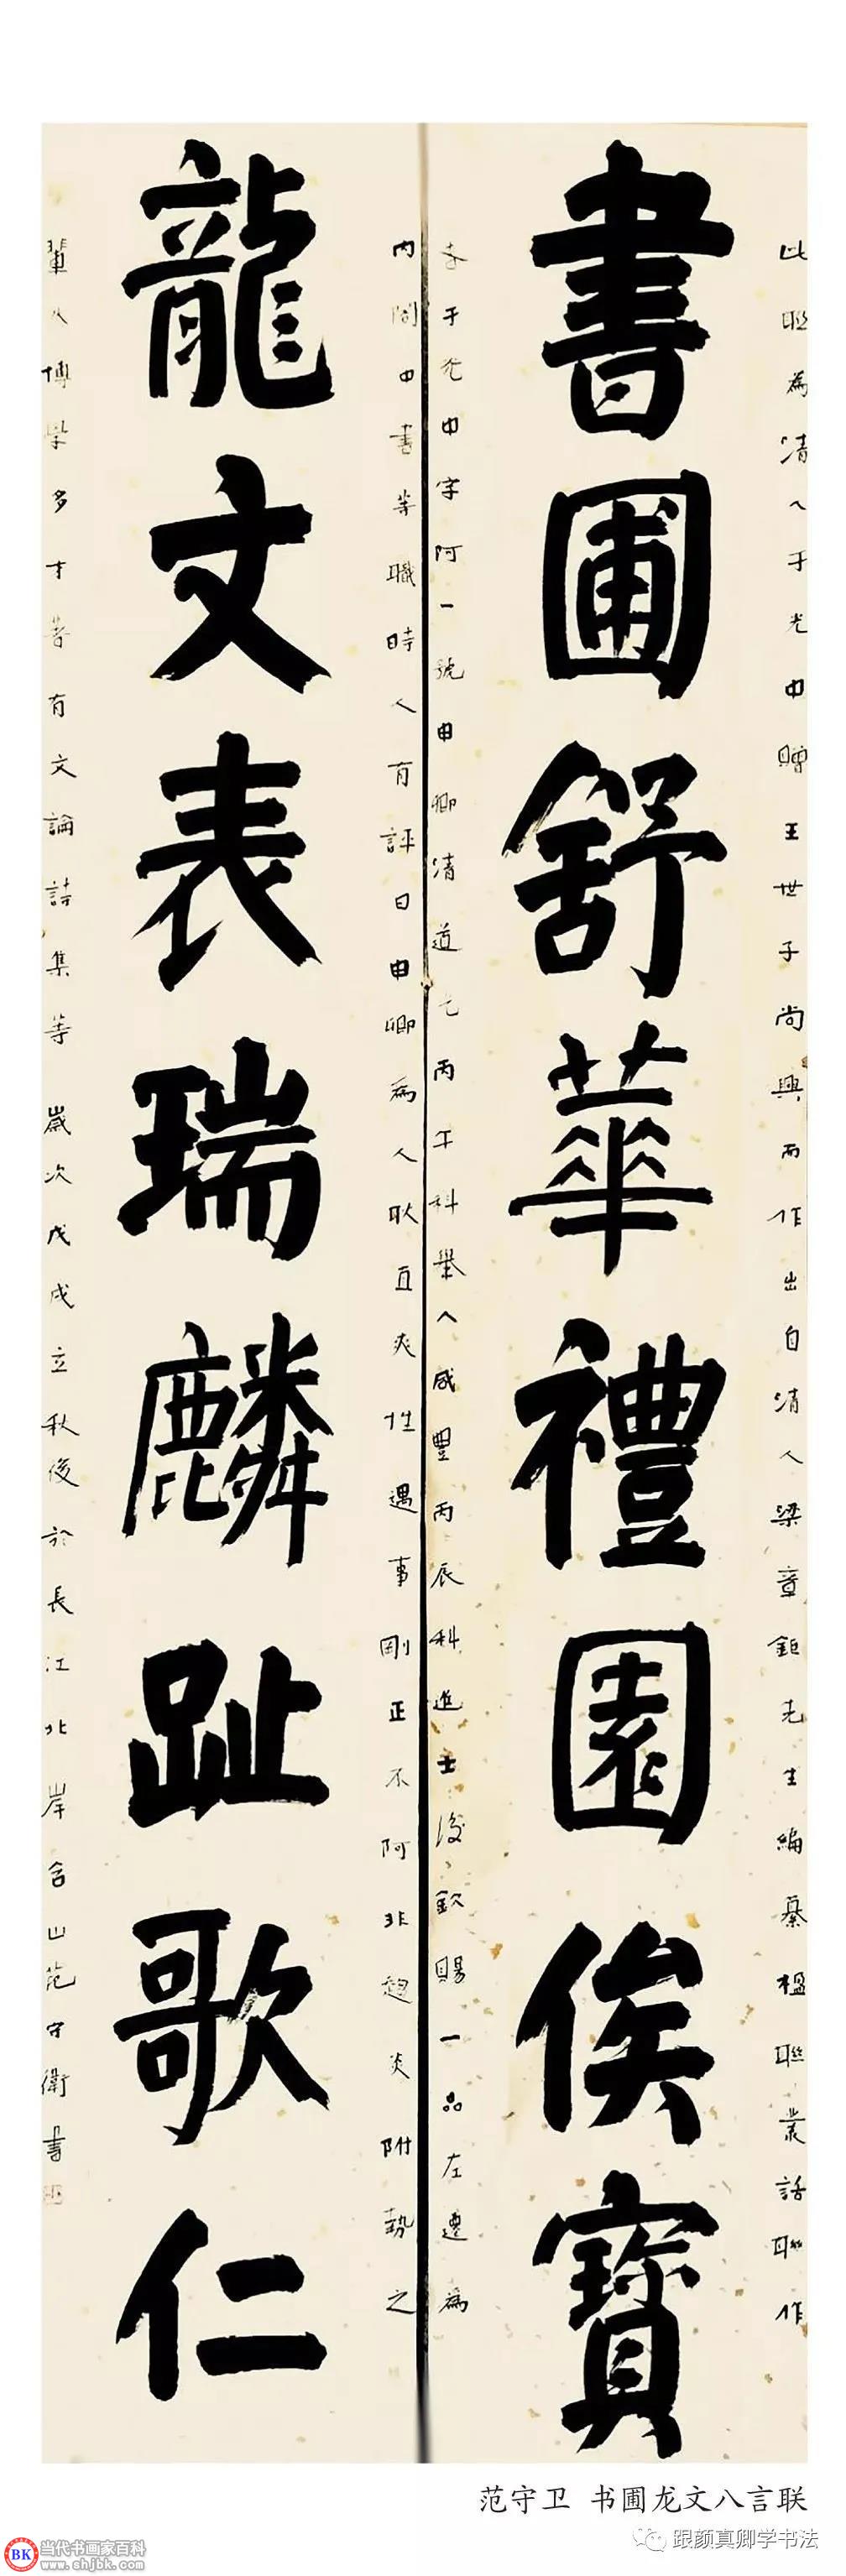 書圃舒華禮園俟寶
龍文表瑞麟趾歌仁
此聯為清人于光甲贈王世子尚興而作出自清人梁章鉅先生編纂楹聯叢話聯作
于光甲字阿一號申卿清道光丙午科舉人咸豐丙辰科進士後欽賜一品左遷為
內閣中書等職時人有評曰申卿為人耿直爽性遇事剛正不阿非趨炎附勢之
輩人博學多才著有文論詩集等歲次戊戌立秋後於長江北岸含山范守衛書
范守卫 书圃龙文八言联
跟颜真卿学书法
BK 当代书画家百科
www.shjbk.com